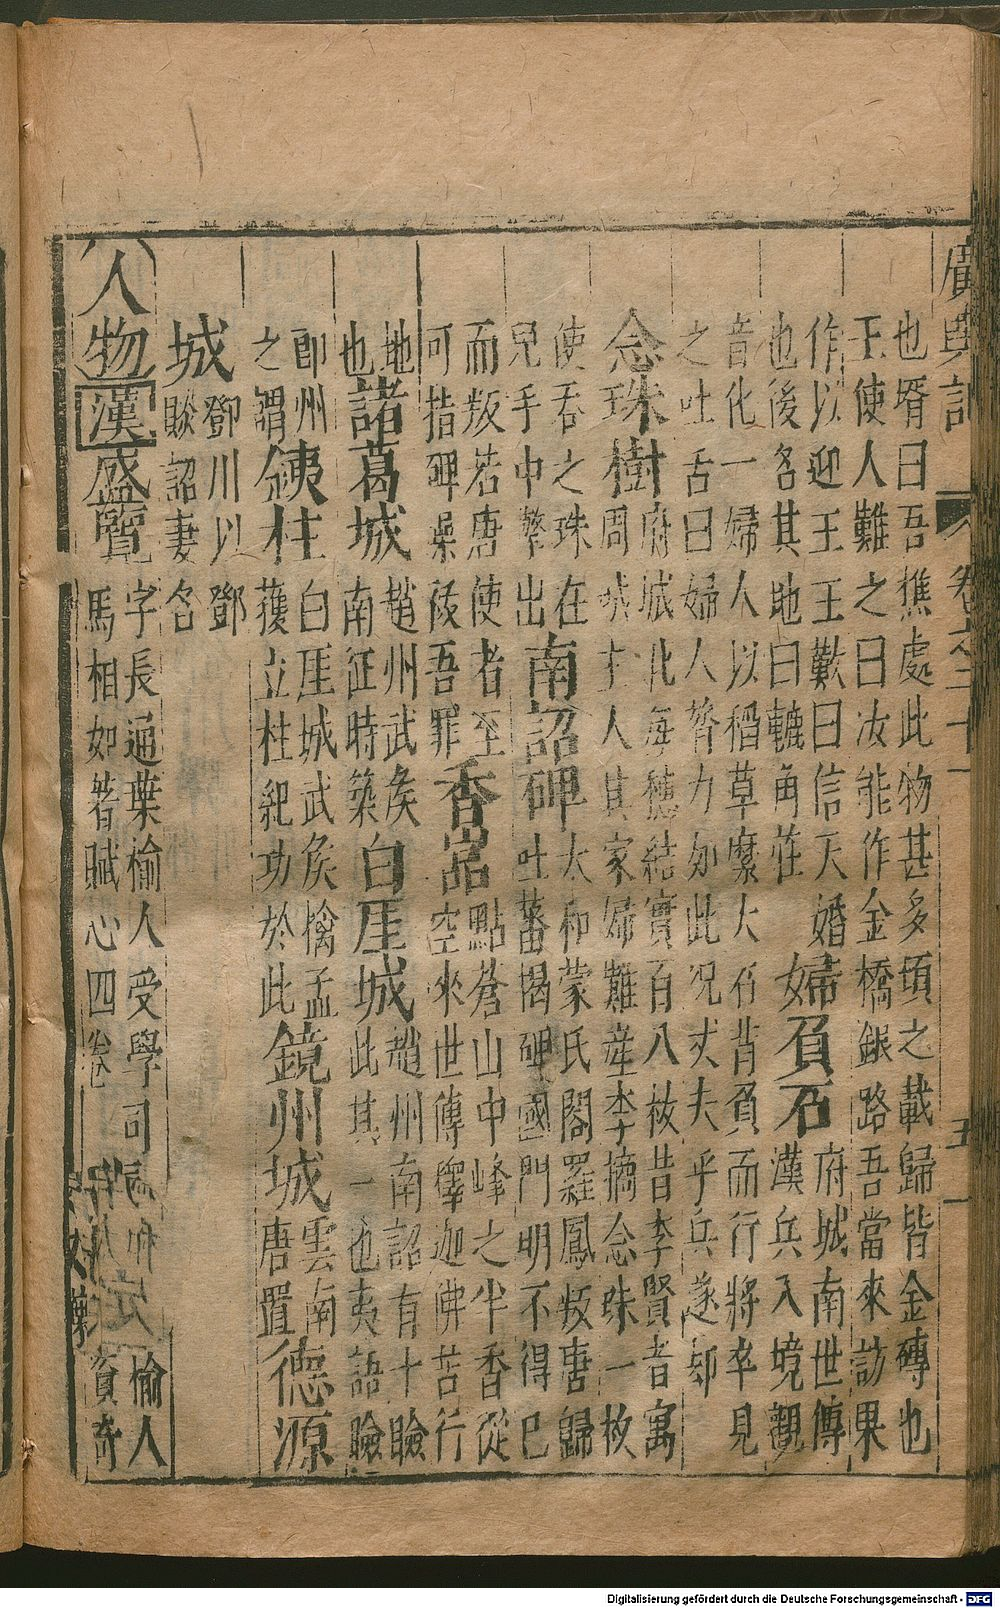 廣輿記 卷之二十一 五一
也壻曰吾樵處此物甚多頃之載歸皆金磚也
王使人難之曰汝能作金橋銀路吾當來訪果
作以迎王王歎曰信天婚婦負石府城南世傳
也後名其地曰轆角莊漢兵入境觀
音化一婦人以稻草縻大石背負而行將卒見
之吐舌曰婦人膂力如此況丈夫乎兵遂却
念珠樹府城北海穗結實百八枚昔李賢者寓
周城主人其家婦難產李摘念珠一枚
使吞之珠在南詔碑太和蒙氏閣羅鳳叛唐歸
兒手中擎出吐蕃揭碑國門明不得已
而叛若唐使者至香嵓點蒼山中峰之半香從
可指碑澡祓吾罪空來世傳釋迦佛苦行
地諸葛城趙州武侯白厓城趙州南詔有十瞼
也南征時築此其一也夷語瞼
即州銕柱白厓城武侯擒孟鏡州城雲南德源
之謂獲立柱紀功於此唐置
城鄧川以鄧
賧詔妻名
人物漢盛覽字長通葉榆人受學司 榆人
馬相如若賦心四卷 資奇
Digitalisierung gefördert durch die Deutsche Forschungsgemeinschaft - DFG